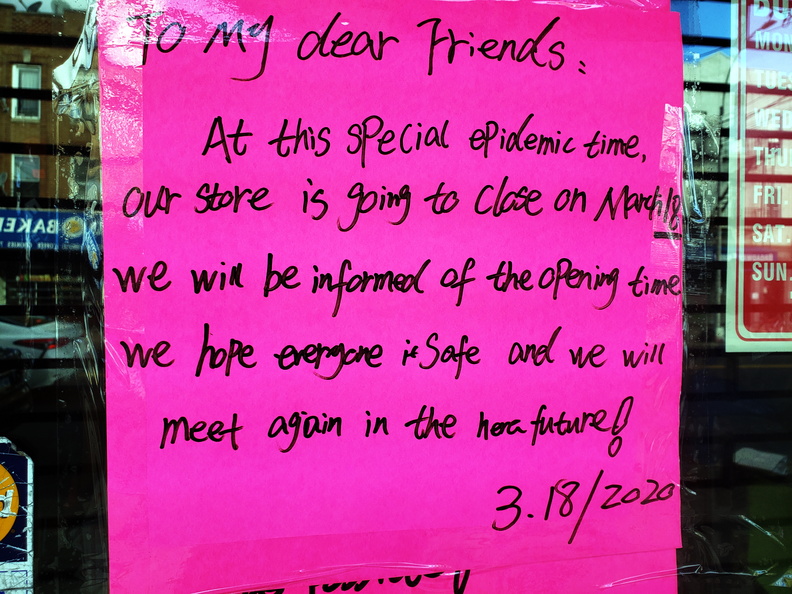 To My dear Friends:
At this special epidemic time,
our store is going to close on March 18
we will be informed of the opening time
we hope everyone is Safe and we will
meet again in the future!
3.18/2020
BAKE
MON
TUES
WED
THU
FRI.
SAT.
SUN.